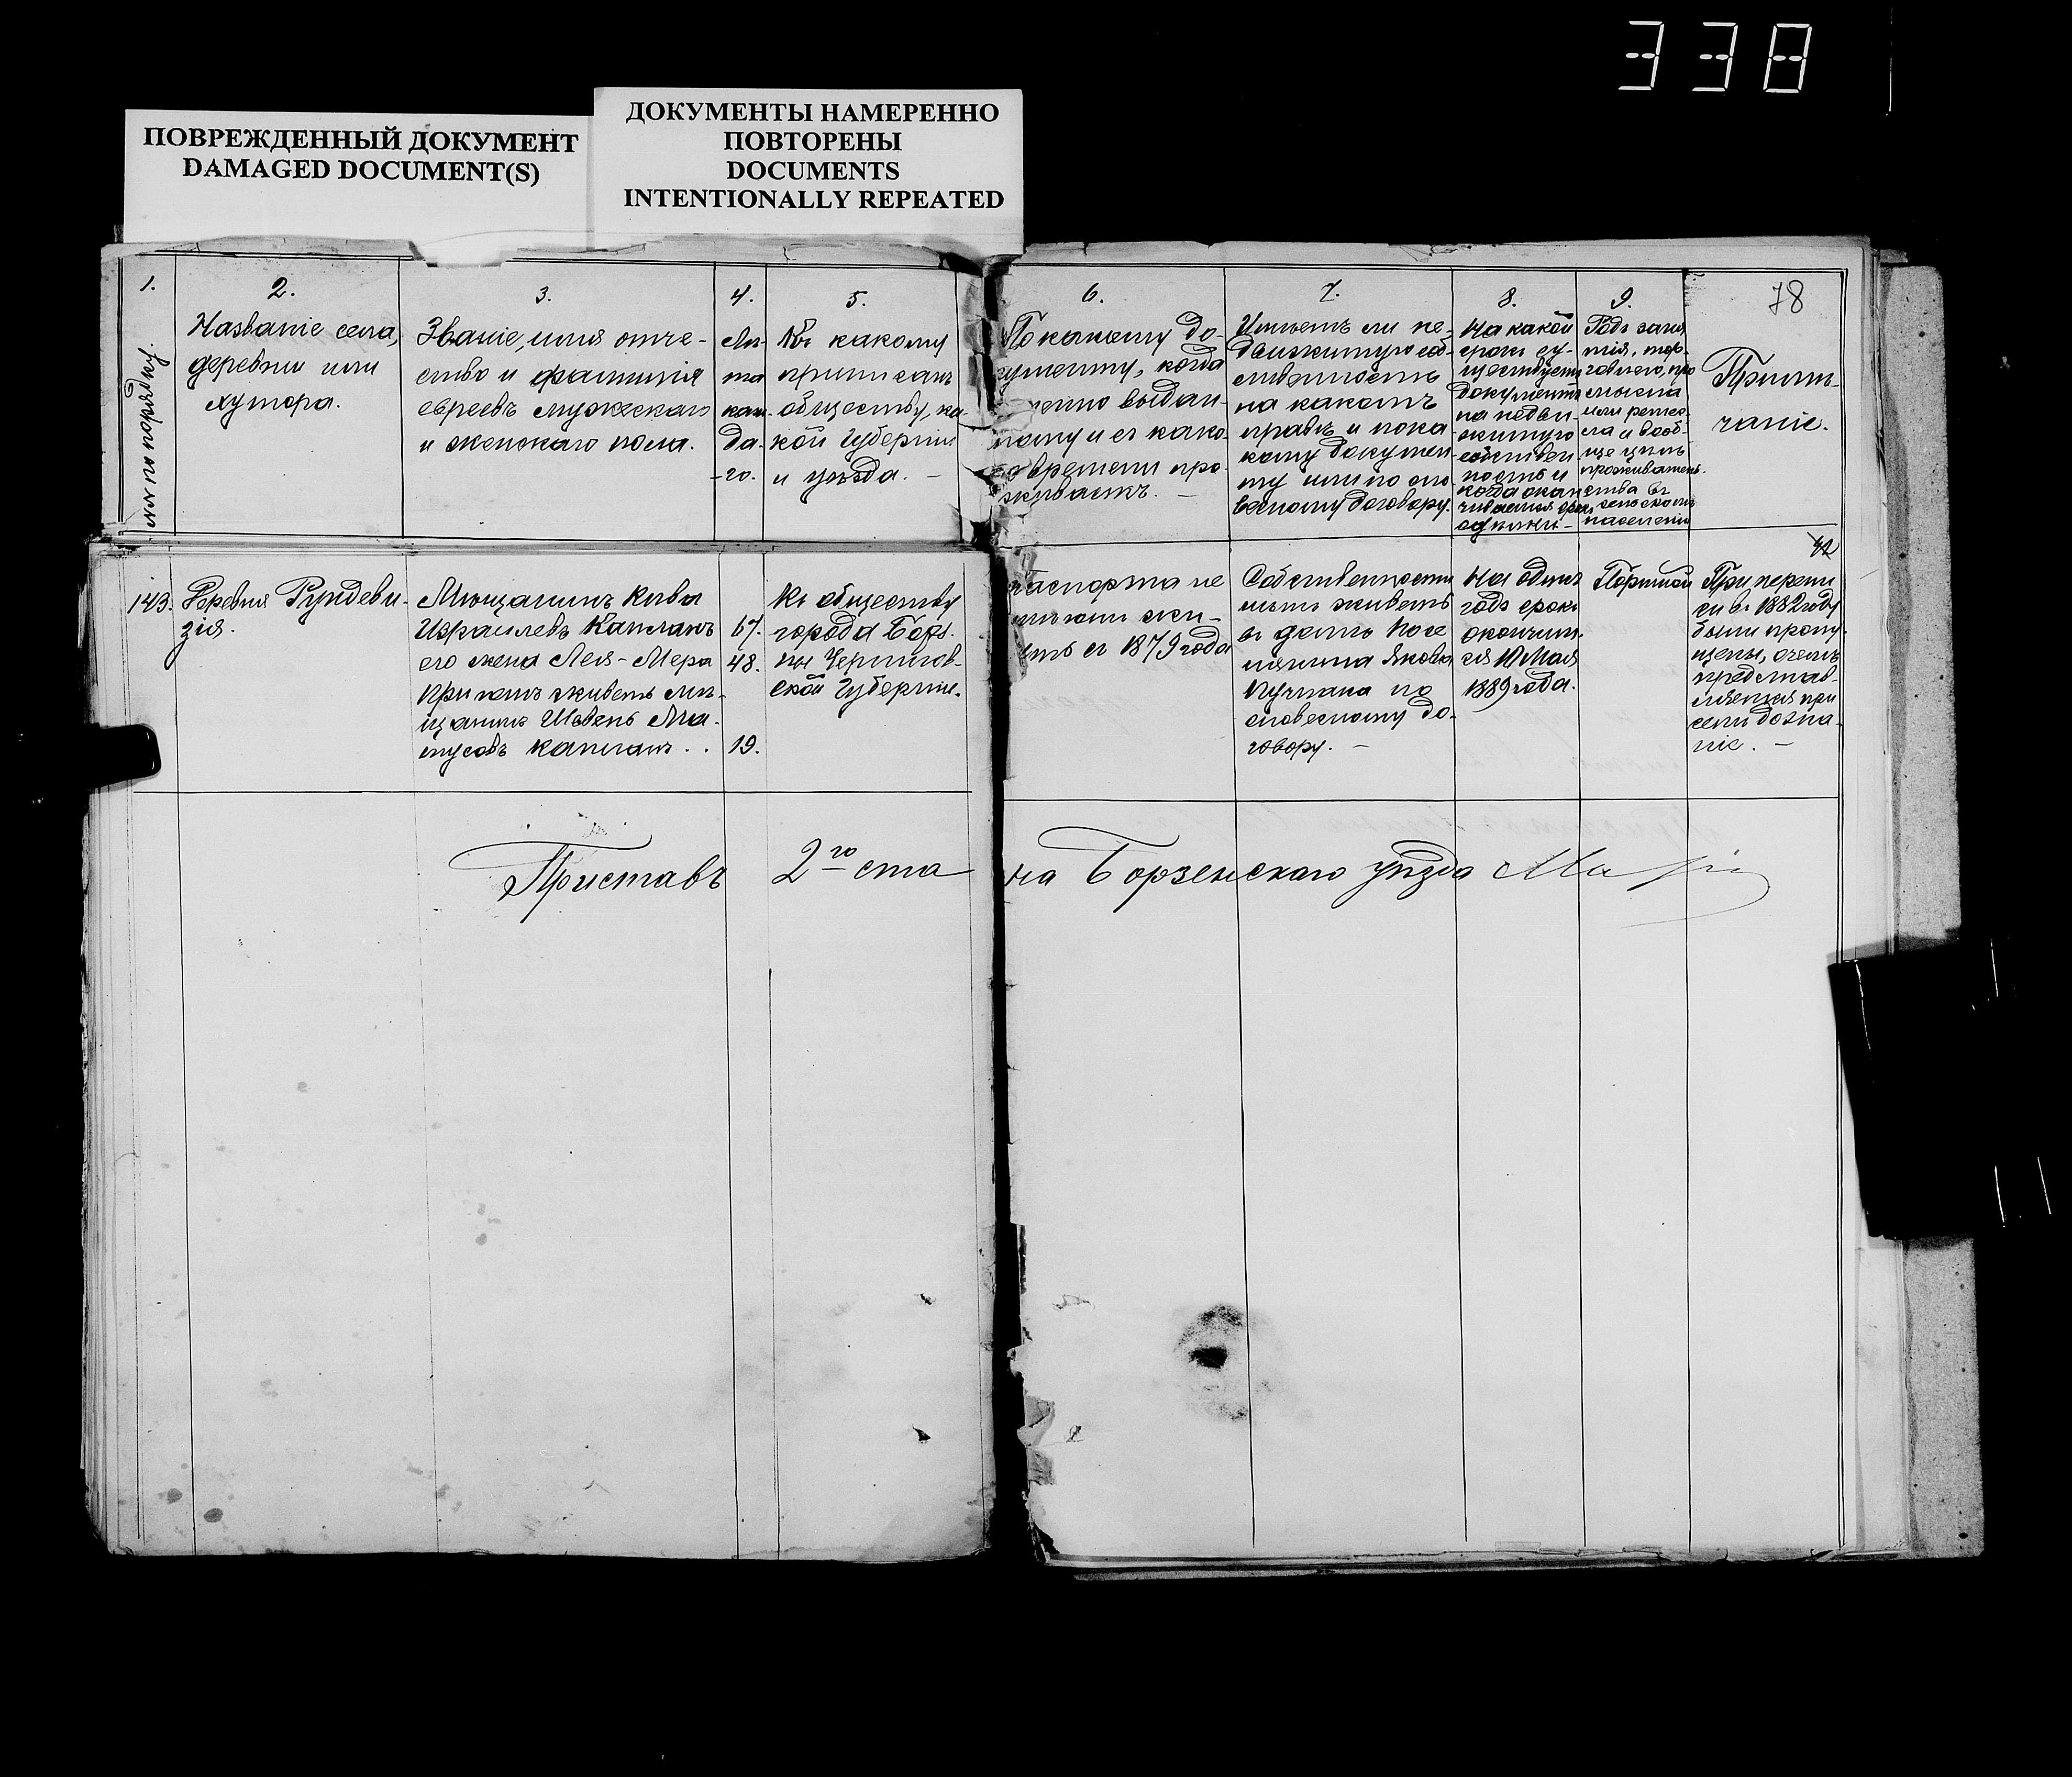 338
ПОВРЕЖДЕННЫЙ ДОКУМЕНТ
DAMAGED DOCUMENT(S)
ДОКУМЕНТЫ НАМЕРЕННО
ПОВТОРЕНЫ
DOCUMENTS
INTENTIONALLY REPEATED
78
1.
№№ по порядку.
2.
Названіе села,
деревни или
хутора.
3.
Званіе, имя отче-
ство и фамилія
евреевъ мужескаго
и женскаго пола.
4.
Лѣ-
та
каж-
да-
-го.
5.
Къ какому
приписанъ
обществу, ка-
кой Губерніи
и уѣзда. –
6.
По какому до-
кументу, когда
выдан-
ному и съ како-
го времени про-
живаетъ. –
7.
Имѣетъ ли не-
движимую соб-
ственность
на какомъ
правѣ и пока
кому докумен
ту или по сло-
весному договору.
8.
На какой
срокъ су-
ществуетъ
документъ
на недви-
жимую
собствен
ность и
когда окан
чивается срокъ
9.
Родъ заня
тія, тор-
говаго, про
мысла
или ремес-
ла и вооб-
ще цѣль
проживатель-
ства въ
сельскомъ
населеніи
Примѣ-
чаніе.
143.
Деревня Рундеви-
зія.
Мѣщанинъ Кива
Израилевъ Капланъ
его жена Лея-Мера
при немъ живетъ мѣ-
щанинъ Шевель Ма-
тусовъ Капланъ . .
67.
48.
19.
Къ обществу
города Борз-
ны Чернигов-
ской Губерніи.
паспорта не
имѣютъ жи-
ветъ съ 1879 года
Собственности
нѣтъ живетъ
въ домѣ посе
лянина Якова
Кучмака по
словесному до-
говору. –
На одинъ
годъ срокъ
окончит.
ся 10 Мая
1889 года.
Портной
При перепи
си въ 1882 году
были пропу-
щены, о чемъ
представ-
ляется при
семъ дозна-
ніе. –
Приставъ 2го ста на Борзенскаго уѣзда